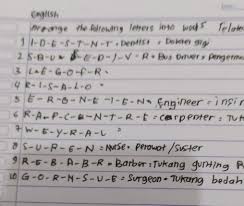 English
Arrange the following letters into words
1 I-D-E-S-T-N-T = Dentist = Dokter gigi
2 S-B-U D-E-D-J-V-R = Bus Driver = Pengemu
3 L-E-G-O-F-R =
4 R-I-S-A-L-O =
5 E-R-G-N-E-I-E-N = Engineer = insin
6 R-A-P-C-E-N-T-R-E = carpenter = Tuk
7 W-E-Y-R-A-L =
8 S-U-R-E-N = Nurse = Perawat / suster
9 R-E-B-A-B-R = Barber = Tukang gunting
10 G-O-R-N-S-U-E = Surgeon = Tukang bedah